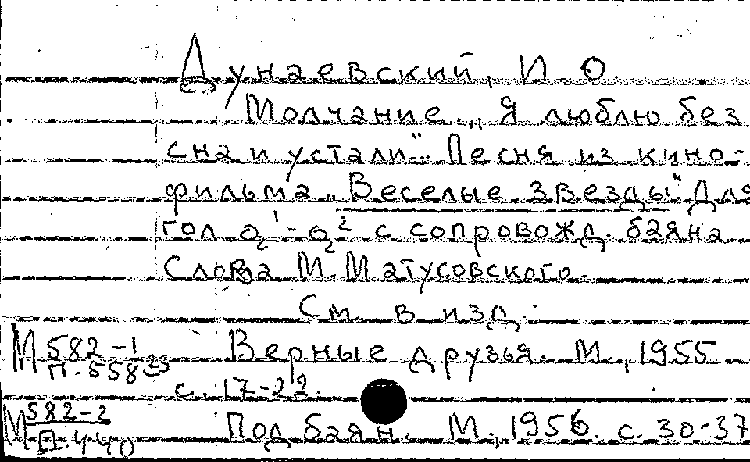 Дунаевский, И. О
Молчание. „Я люблю без
сна и устали". Песня из кино-
фильма „Веселые звезды" Для
гол. с сопровожд. баяна
Слова М. Матусовского.
См. в изд.:
М 582-1 Верные друзья. М., 1955
П-5583
с. 17-22.
М 582-2 Под баян. М., 1956. с. 30-37
440